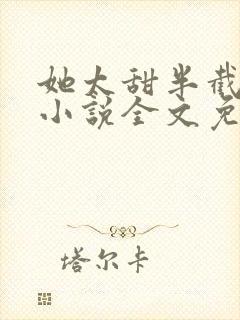 她太甜半截
小说全文免
塔尔卡